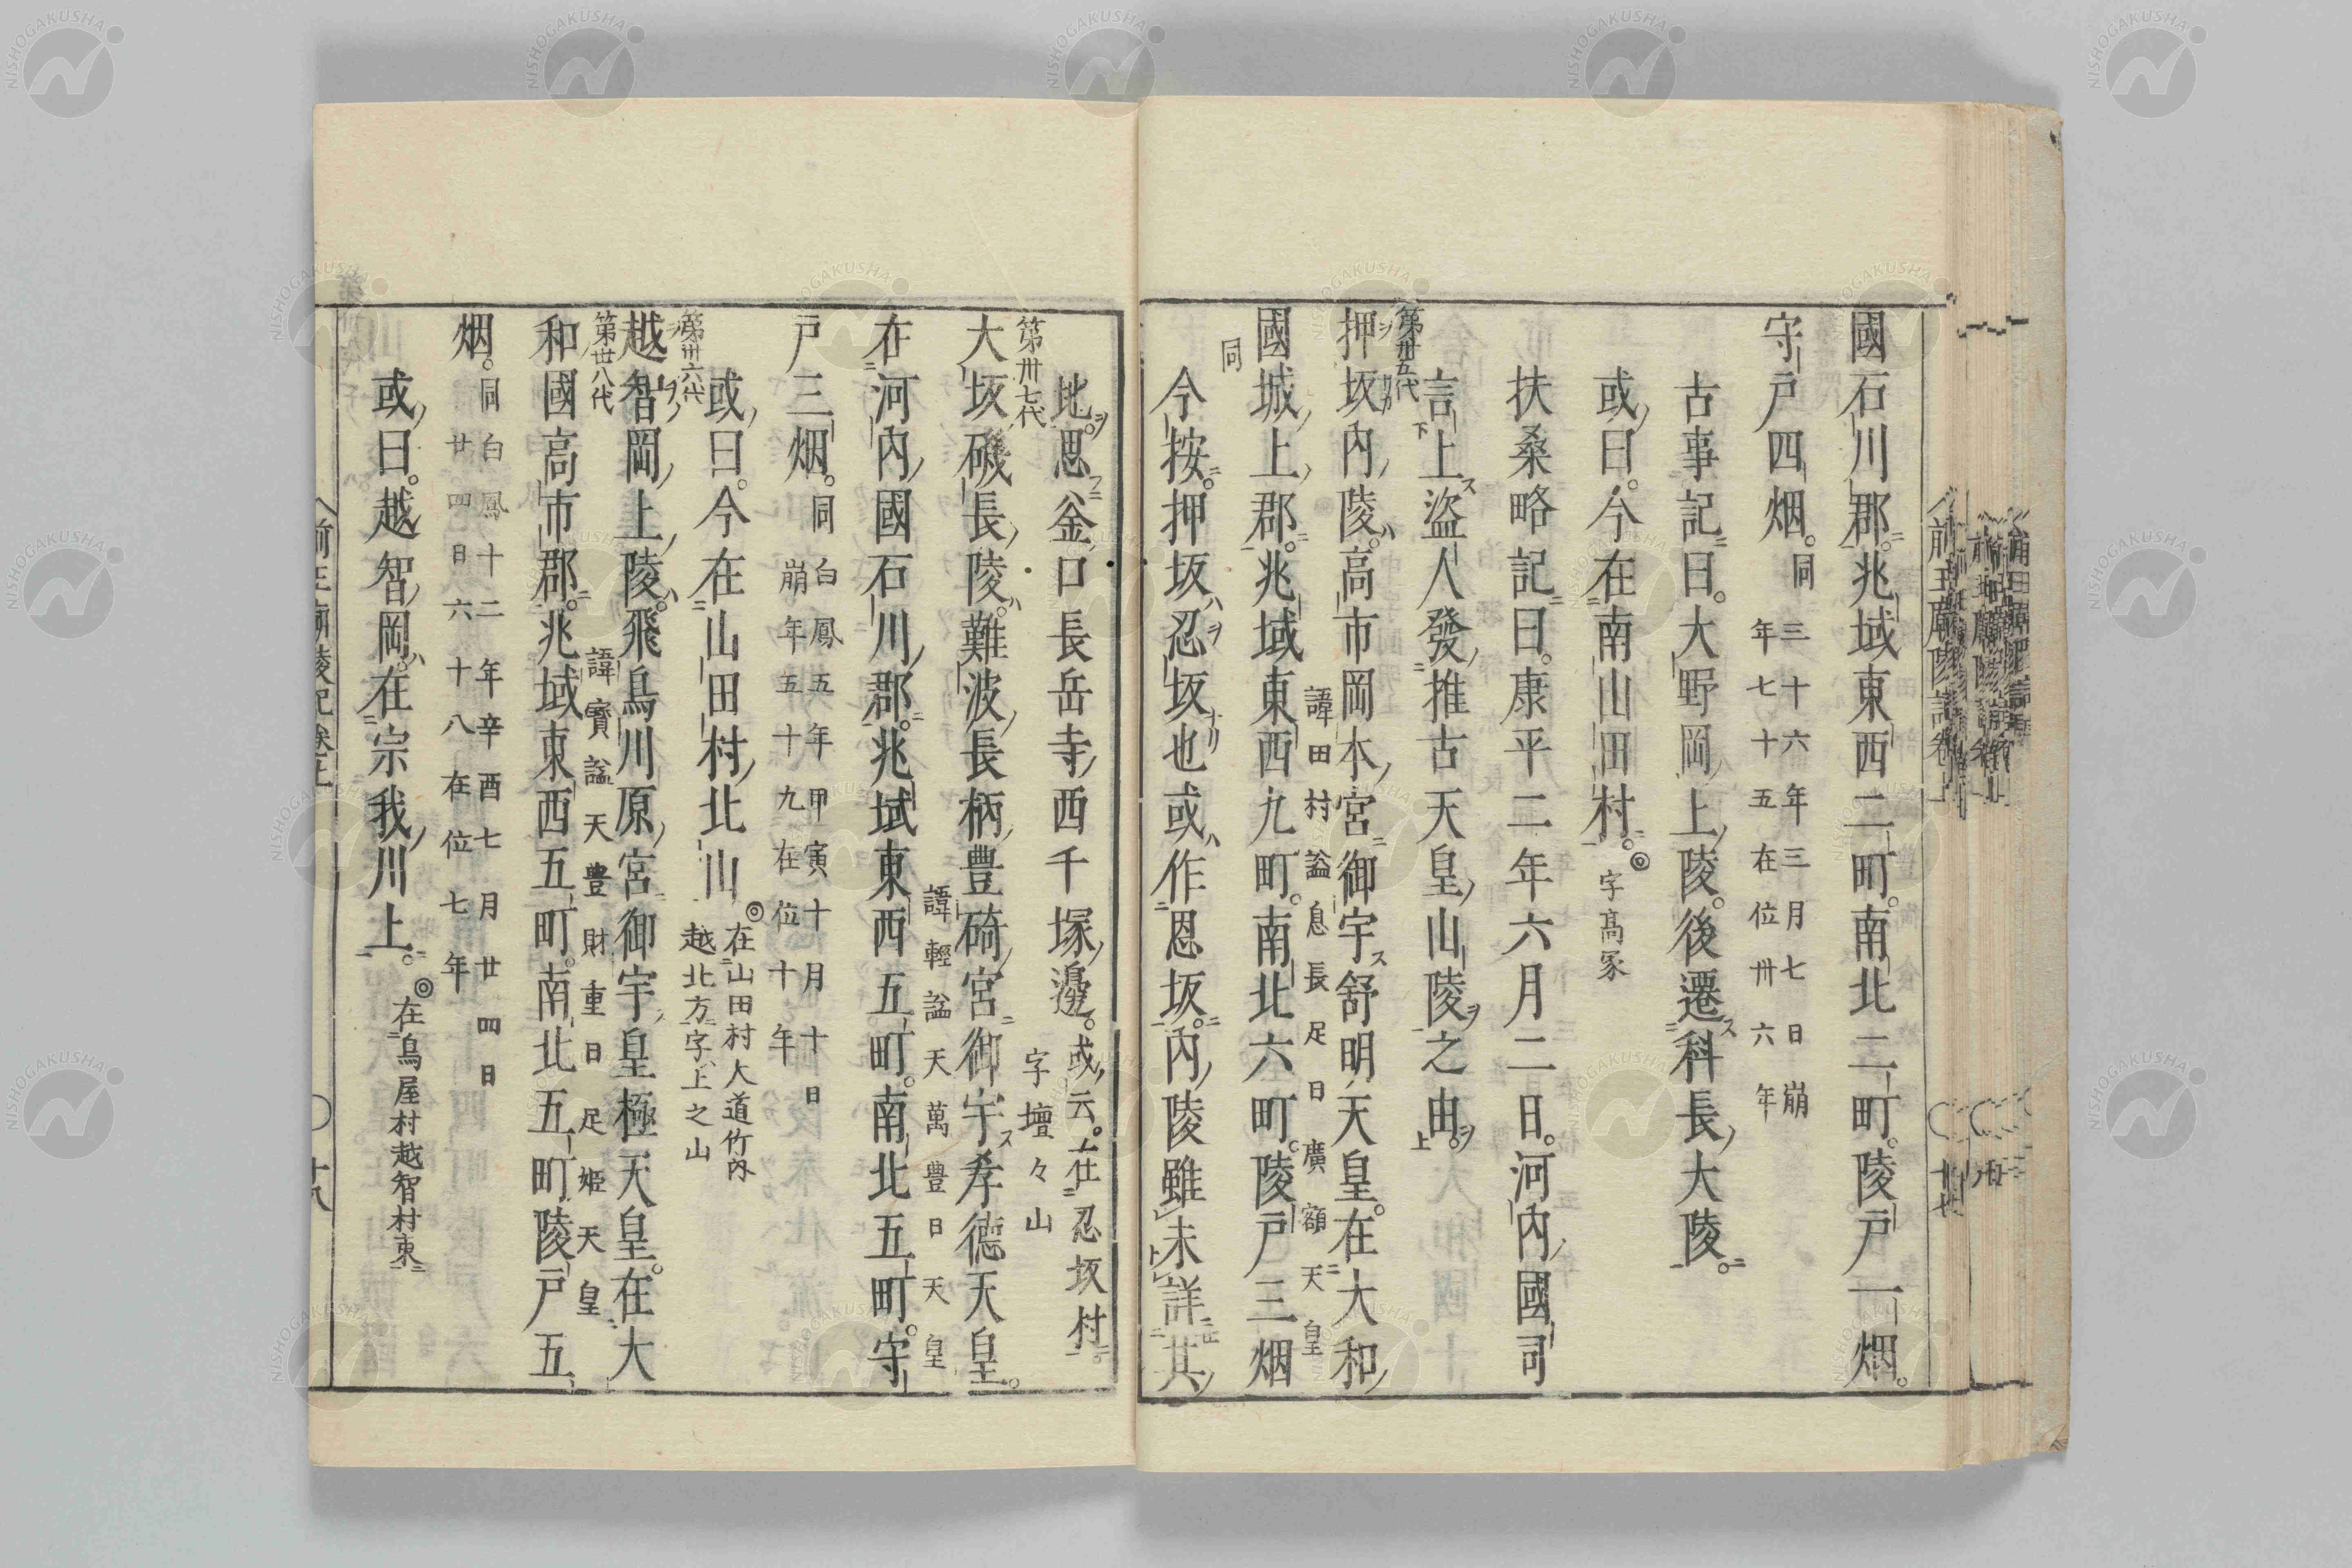 國石川郡。兆域東西二町。南北二町。陵戸一烟。
守戸四烟。同三十六年三月七日崩
年七十五在位卅六年
古事記曰。大野岡上陵。後遷科長大陵。
或曰。今在南山田村。◎字髙冢
扶桑略記曰。康平二年六月二日。河內國司
言上盜人發推古天皇山陵之由。
第卅五代
押坂內陵。高市岡本宮御宇舒明天皇。在大和
諱田村謚息長足日廣額天皇
國城上郡。兆域東西九町。南北六町。陵戸三烟
同
今按。押坂忍坂也或作恩坂。內陵雖未詳其
地。思釜口長岳寺西千塚邊。或云。在忍坂村。
字壇々山
第卅七代
大坂磯長陵。難波長柄豊碕宮御宇孝德天皇。
諱輕謚天萬豊日天皇
在河內國石川郡。兆域東西五町。南北五町。守
戸三烟。同白鳳五年甲寅十月十日
崩年五十九在位十年
或曰。今在山田村北山◎在山田村大道竹內
越北方字上之山
第卅六代
越智岡上陵。飛鳥川原宮御宇皇極天皇。在大
第卅八代
諱寳謚天豊財重日足姫天皇
和國高市郡。兆域東西五町。南北五町陵戸五
烟。同白鳳十二年辛酉七月廿四日
廿四日六十八在位七年
或曰。越智岡。在宗我川上。◎在鳥屋村越智村東
前王廟陵記卷上
十八
前王廟陵記卷上
十七